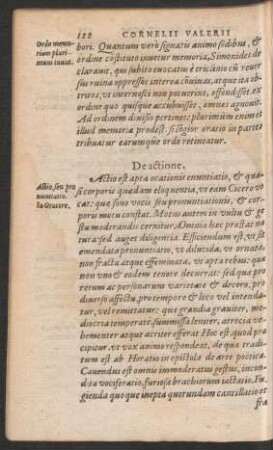 122 CORNELII VALERII
Ordo memoriam plurimum iuuat.
bori. Quantum verò signatis animo sedibus, &
ordine cōstituto iuuetur memoria, Simonides declarauit,
qui subitò euocatus è triclinio cùm reuersus
ruina oppressos interea cōuiuas, atque ita obtritos,
vt internosci non potuerint, offendisset, ex
ordine quo quisque accubuisset, omnes agnouit.
Ad ordinem diuisio pertinet: plurimùm enim et
illud memoriæ prodest, si longior oratio in partes
tribuatur earumque ordo retineatur.
De actione.
Actio, seu pronuntiatio. In Oratore.
Actio est apta orationis enuntiatio, & quasi
corporis quædam eloquentia, vt eam Cicero vocat:
quæ sono vocis seu pronuntiationis, & corporis
motu constat. Motus autem in vultu & gestu
moderandis cernitur. Omnia hæc præstat natura:
sed auget diligentia. Efficiendum est, vt sit
emendata pronuntiatio, vt dilucida, vt ornata,
non fracta atque effeminata, vt apta rebus: quæ
non vno & eodem tenore decurrat: sed quæ pro
rerum ac personarum varietate & decoro, pro
diuerso affectu, pro tempore & loco vel intendatur,
vel remittatur: quo grandia grauiter, mediocria
temperatè, summissa leniter, atrocia vehementer
atque acriter efferat. Hoc est quod præcipitur,
vt vox animo respondeat, de quo traditum
est ab Horatio in epistola de arte poëtica.
Cauendus est omnis immoderatus gestus, incondita
vociferatio, furiosa brachiorum iactatio. Fugienda
quoque inepta quorundam cantillatio et
fra